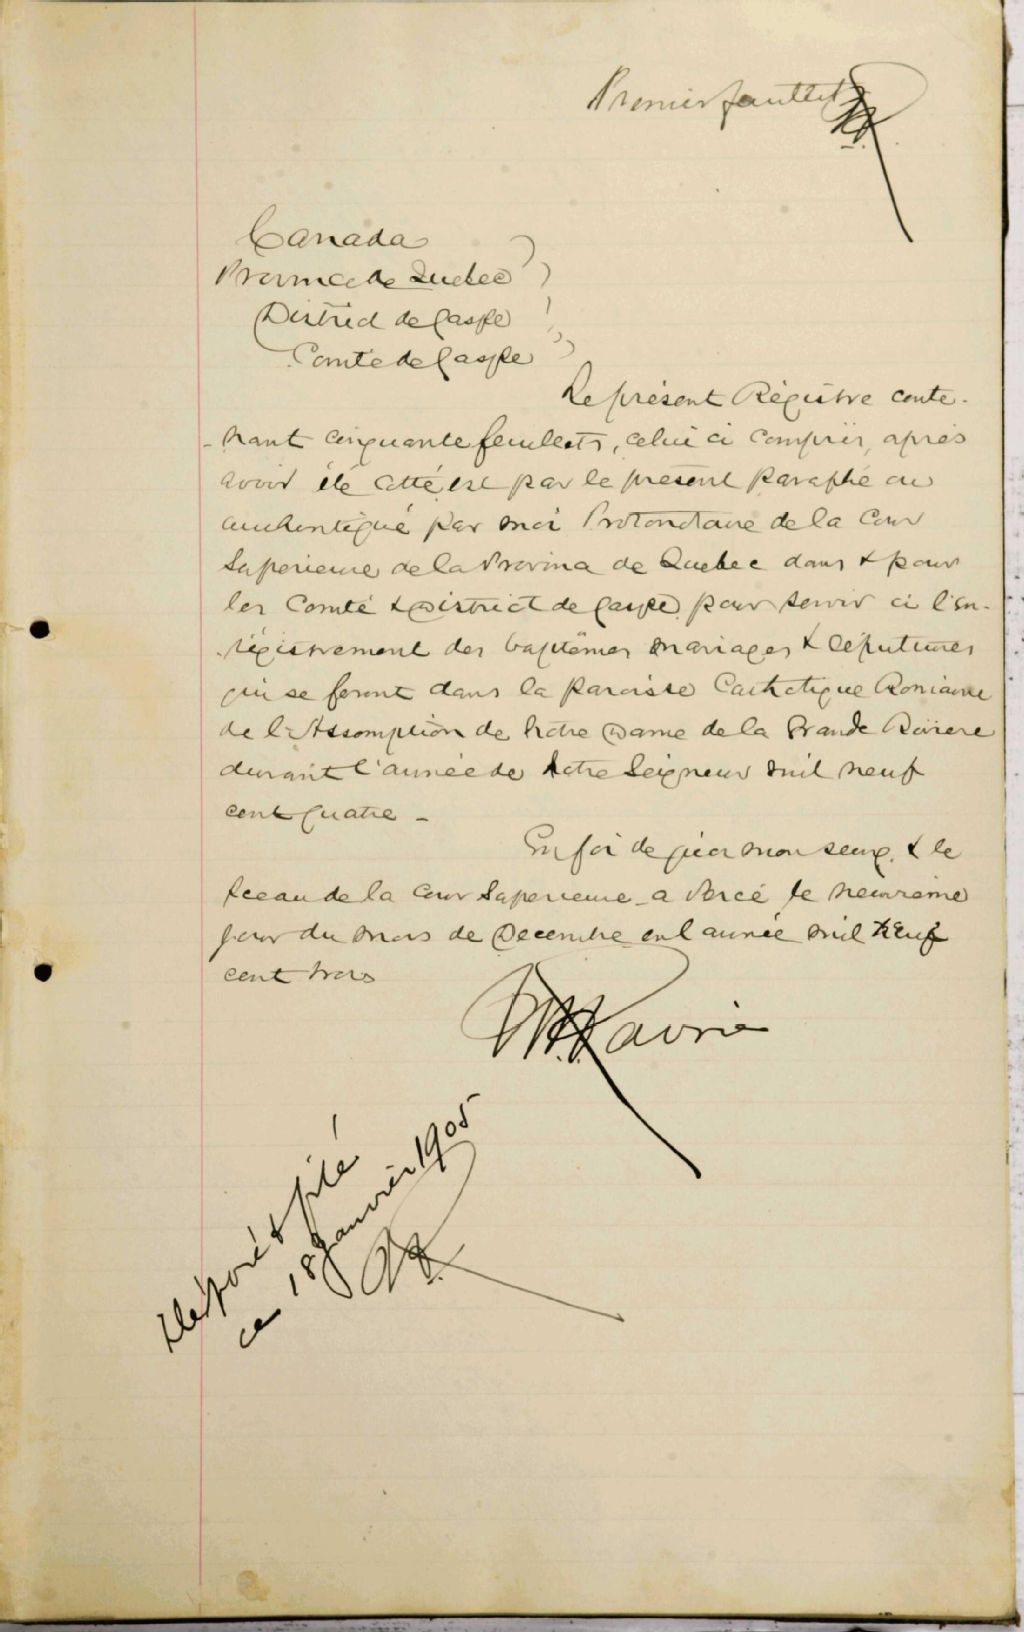 Premier feuillet
Canada )
Province de Quebec )
District de Gaspe )
Comté de Gaspe )
Le présent Régistre conte-
-nant cinquante feuillets, celui ci compris, après
avoir été cotté est par le présent paraphé ou
authentiqué par moi Protonotaire de la Cour
Superieure de la Province de Quebec dans & pour
les Comté & District de Gaspe, pour servir à l'en-
-régistrement des baptêmes mariages & sépultures
qui se feront dans la paroisse Catholique Romaine
de l'Assomption de Notre Dame de la Grande Rivière
durant l'année de Notre Seigneur mil neuf
cent quatre -
En foi de quoi mon seing, & le
sceau de la Cour Superieure a Percé le neuvieme
jour du mois de Decembre en l'année mil neuf
cent trois
Lavoie
Déposé & filé
ce 18 janvier 1905